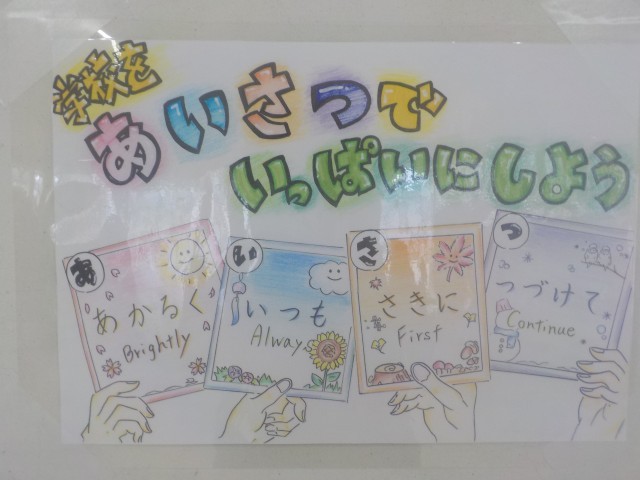 学校を
あいさつで
いっぱいにしよう
あ
あかるく
Brightly
い
いつも
Always
さ
さきに
First
つ
つづけて
Continue